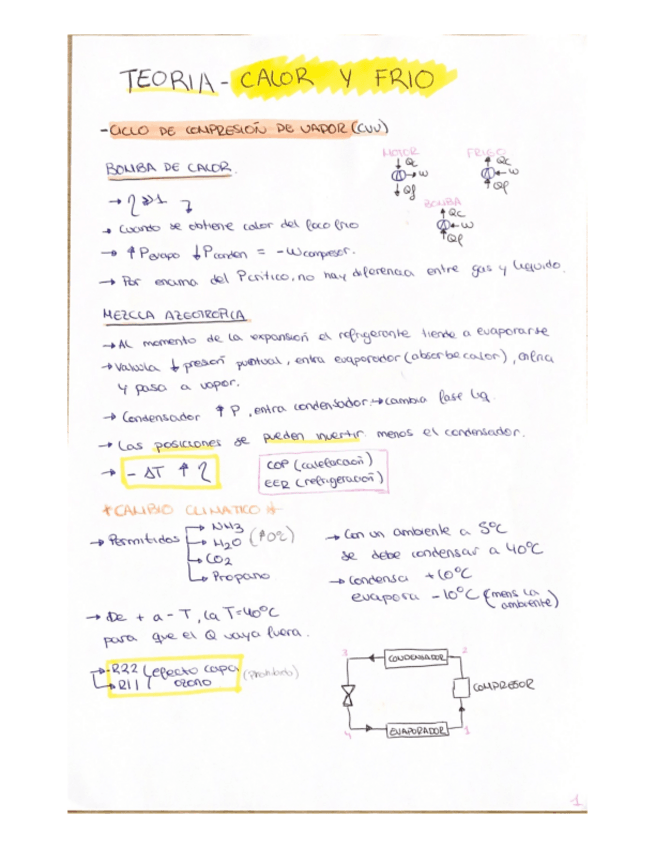 TEORIA - CALOR Y FRIO
- CICLO DE COMPRESIÓN DE VAPOR (CVV)
MOTOR
Qc
W
Qf
FRIGO
Qc
W
Qf
BOMBA
Qc
W
Qf
BOMBA DE CALOR.
→ η >> 1
→ Cuando se obtiene calor del foco frio
→ ↑ Pevapo ↓ Pconden = - Wcompresor.
→ Por encima del Pcritico, no hay diferencia entre gas y liquido.
MEZCLA AZEOTROPICA
→ Al momento de la expansión el refrigerante tiende a evaporarse
→ Valvula ↓ presión puntual, entra evaporador (absorbe calor), enfria
y pasa a vapor.
→ Condensador ↑ P, entra condensador → cambia fase liq.
→ Las posiciones se pueden invertir menos el condensador.
→ - ΔT ↑ η
COP (calefacción)
EER (refrigeración)
* CAMBIO CLIMATICO *
→ Permitidos
→ NH3
→ H2O
→ CO2
→ Propano
→ Con un ambiente a 5ºC
se debe condensar a 40ºC
→ Condensa +10ºC
evapora -10ºC (menos la
ambiente)
→ De + a - T, la T=40ºC
para que el Q vaya fuera.
→ R22
→ R11
efecto capa
ozono
(Prohibido)
3
CONDENSADOR
2
COMPRESOR
4
EVAPORADOR
1
1